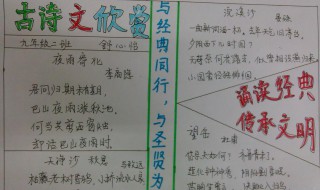 古诗文欣赏
九年级二班
夜雨寄北
李商隐
君问归期未有期,
巴山夜雨涨秋池。
何当共剪西窗烛,
却话巴山夜雨时。
天净沙 秋思
马致远
枯藤老树昏鸦,小桥流水人家
与经典同行,与圣贤为
浣溪沙
晏殊
一曲新词酒一杯,去年天气旧亭台。
夕阳西下几时回?
无可奈何花落去,似曾相识燕归来。
小园香径独徘徊。
诵读经典
传承文明
望岳
杜甫
岱宗夫如何?齐鲁青未了。
造化钟神秀,阴阳割昏晓。